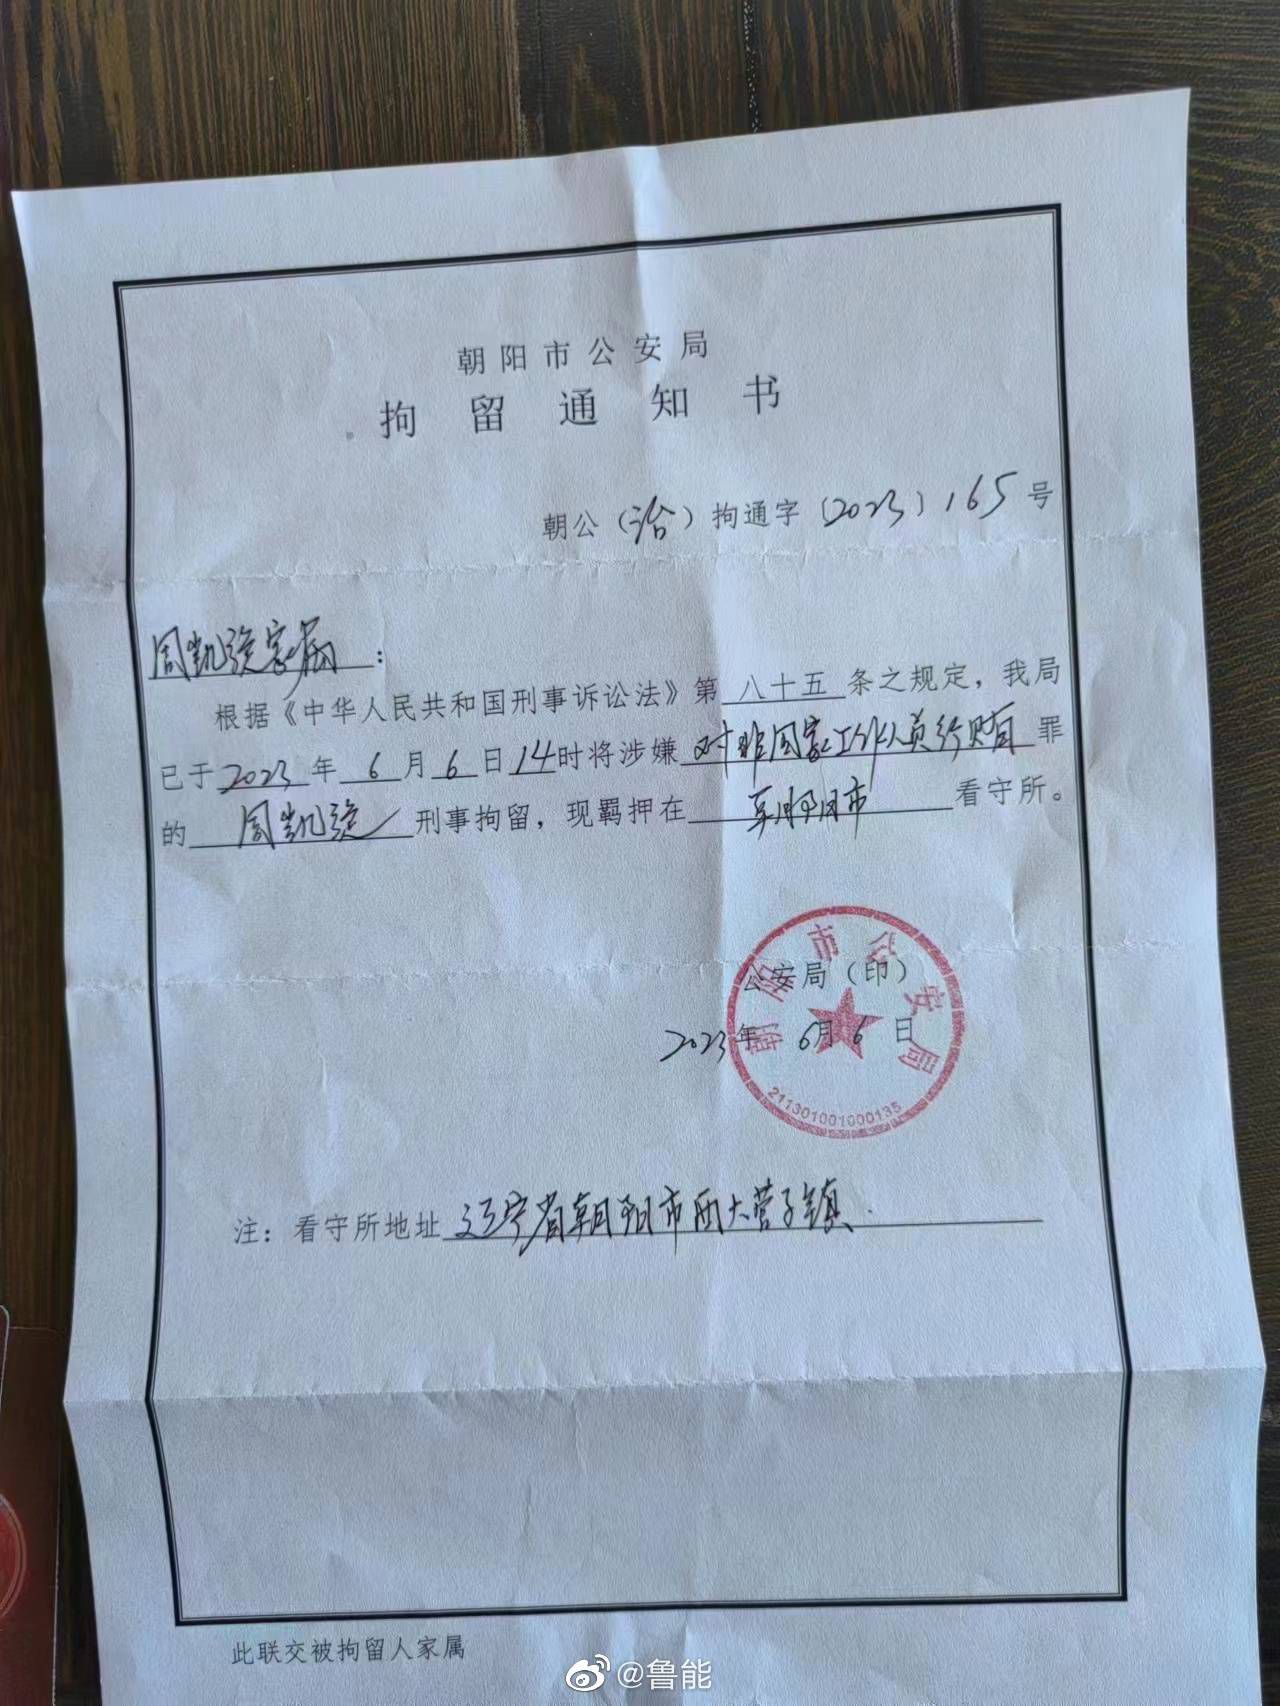 朝阳市公安局
拘留通知书
朝公(治)拘通字〔2023〕165号
周凯旋家属：
根据《中华人民共和国刑事诉讼法》第八十五条之规定，我局
已于2023年6月6日14时将涉嫌对非国家工作人员行贿罪
的周凯旋刑事拘留，现羁押在朝阳市看守所。
朝阳市公安局
公安局（印）
2023年6月6日
211301001000135
注：看守所地址辽宁省朝阳市西大营子镇.
此联交被拘留人家属
@鲁能